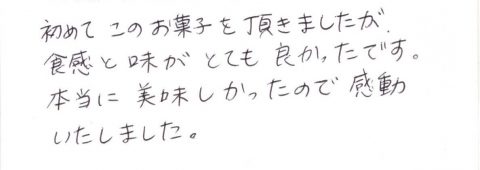 初めて このお菓子を頂きましたが、
食感と味が とても 良かったです。
本当に 美味しかったので 感動
いたしました。